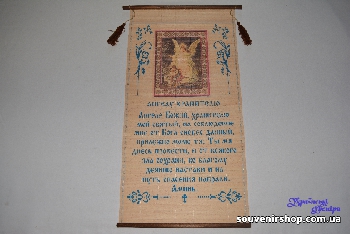 АНГЕЛУ ХРАНИТЕЛЮ
Ангеле Божий, хранителю
мой святый, на соблюдение
мне от Бога с небес данный,
прилежно молю тя. Ты мя
днесь просвети, и от всякого
зла сохрани, ко благому
деянию настави и на
путь спасения направи.
Аминь
souvenirshop.com.ua
www.souvenirshop.com.ua